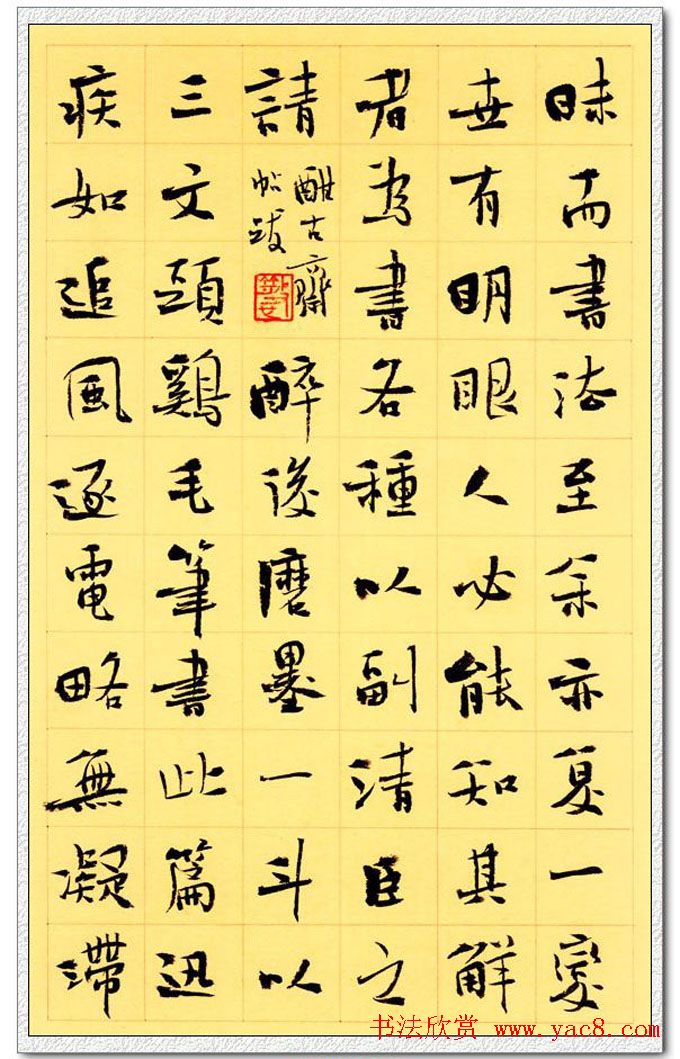 昧而書法至余亦复一變
世有明眼人必能知其解
者為書各種以副清臣之
請
酣古齋
帖跋
醉後磨墨一斗以
三文頭鷄毛筆書此篇迅
疾如追風逐電略無凝滯
书法欣赏 www.yac8.com